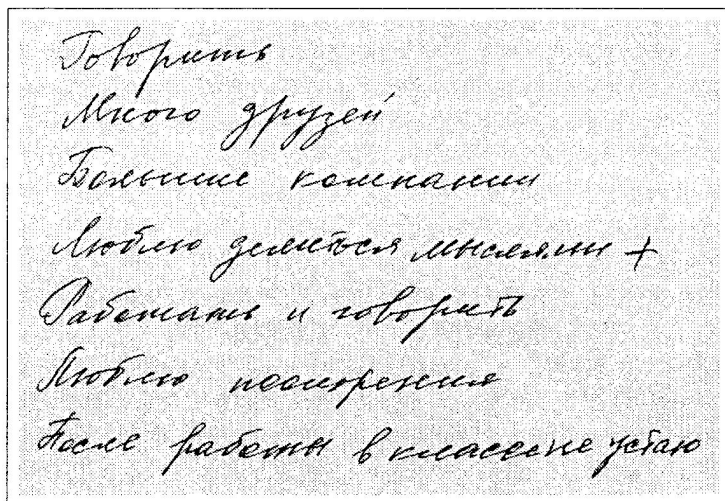 Говорить
Много друзей
Большие компании
Люблю делиться мыслями +
Работать и говорить
Люблю поощрения
После работы в классе не устаю